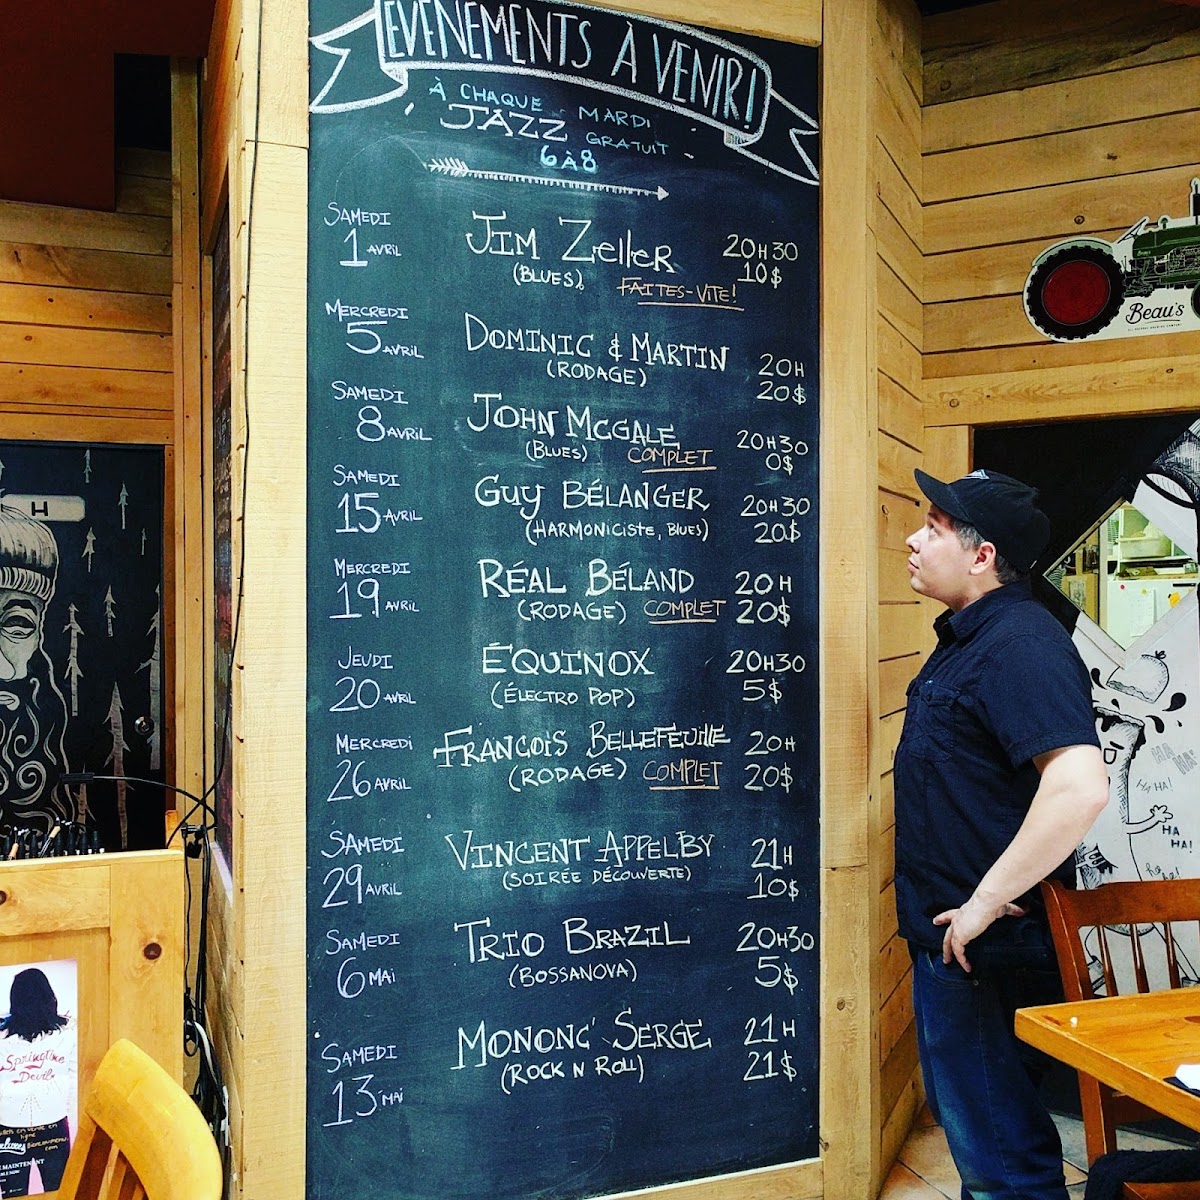 ÉVÉNEMENTS À VENIR!
À CHAQUE MARDI
JAZZ GRATUIT
6 À 8
SAMEDI 1 AVRIL
JIM ZELLER
(BLUES)
FAITES-VITE!
20H30
10$
MERCREDI 5 AVRIL
DOMINIC & MARTIN
(RODAGE)
20H
20$
SAMEDI 8 AVRIL
JOHN MCGALE
(BLUES) COMPLET
20H30
0$
SAMEDI 15 AVRIL
GUY BÉLANGER
(HARMONICISTE, BLUES)
20H30
20$
MERCREDI 19 AVRIL
RÉAL BÉLAND
(RODAGE) COMPLET
20H
20$
JEUDI 20 AVRIL
ÉQUINOX
(ÉLECTRO POP)
20H30
5$
MERCREDI 26 AVRIL
FRANÇOIS BELLEFEUILLE
(RODAGE) COMPLET
20H
20$
SAMEDI 29 AVRIL
VINCENT APPELBY
(SOIRÉE DÉCOUVERTE)
21H
10$
SAMEDI 6 MAI
TRIO BRAZIL
(BOSSANOVA)
20H30
5$
SAMEDI 13 MAI
MONONC' SERGE
(ROCK N ROLL)
21H
21$
Beau's
H
HA HA!
HA HA!
HA HA!
haha!
Springtime
Devil
en vente en
ligne
MAINTENANT